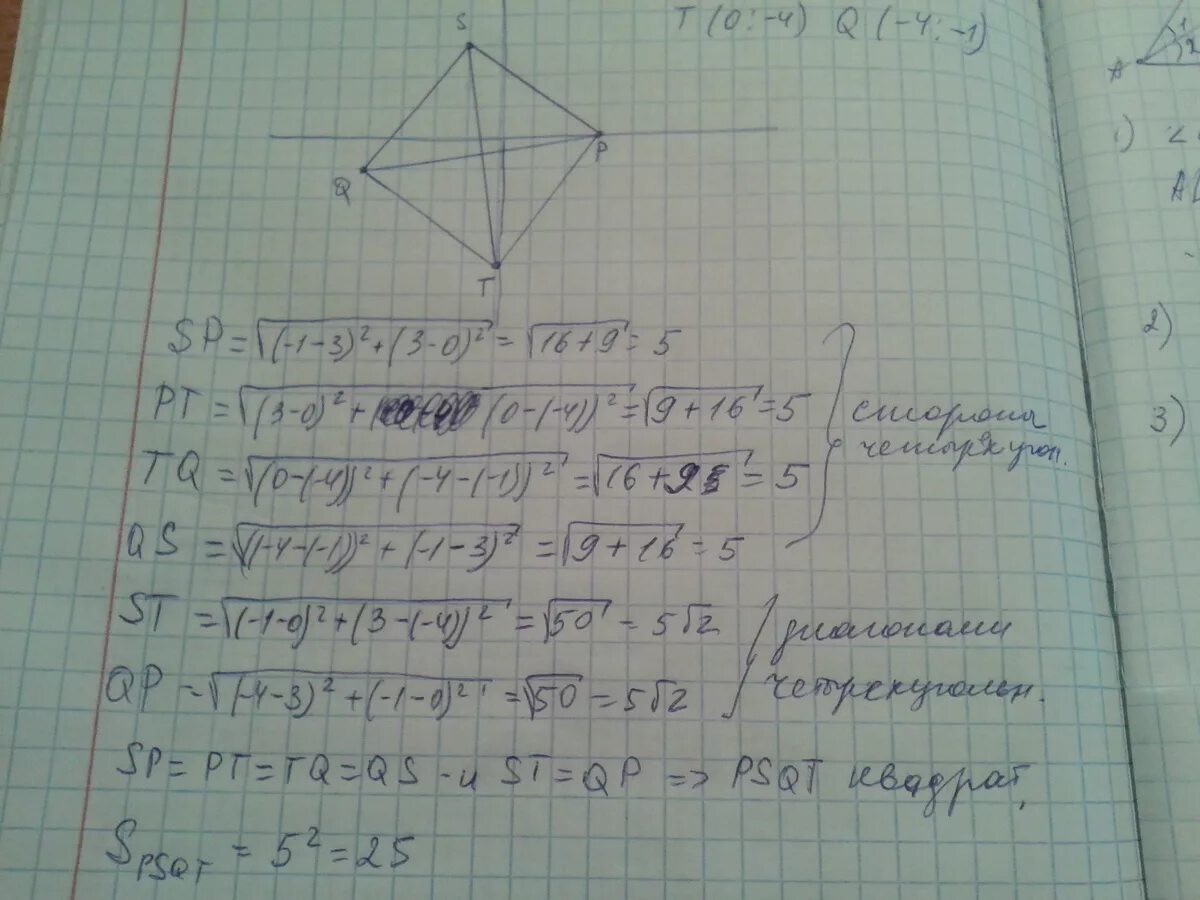 T (0; -4) Q (-4; -1)
S
P
Q
T
SP = √((-1-3)² + (3-0)²) = √(16+9) = 5
PT = √((3-0)² + (0-(-4))²) = √(9+16) = 5
TQ = √((0-(-4))² + (-4-(-1))²) = √(16+9) = 5
QS = √((-4-(-1))² + (-1-3)²) = √(9+16) = 5
стороны
четырёхугол.
ST = √((-1-0)² + (3-(-4))²) = √50 = 5√2
QP = √((-4-3)² + (-1-0)²) = √50 = 5√2
диагонали
четырехугольн.
SP = PT = TQ = QS и ST = QP => PSQT квадрат,
S PSQT = 5² = 25
A
1
2
1) <
A
2)
3)